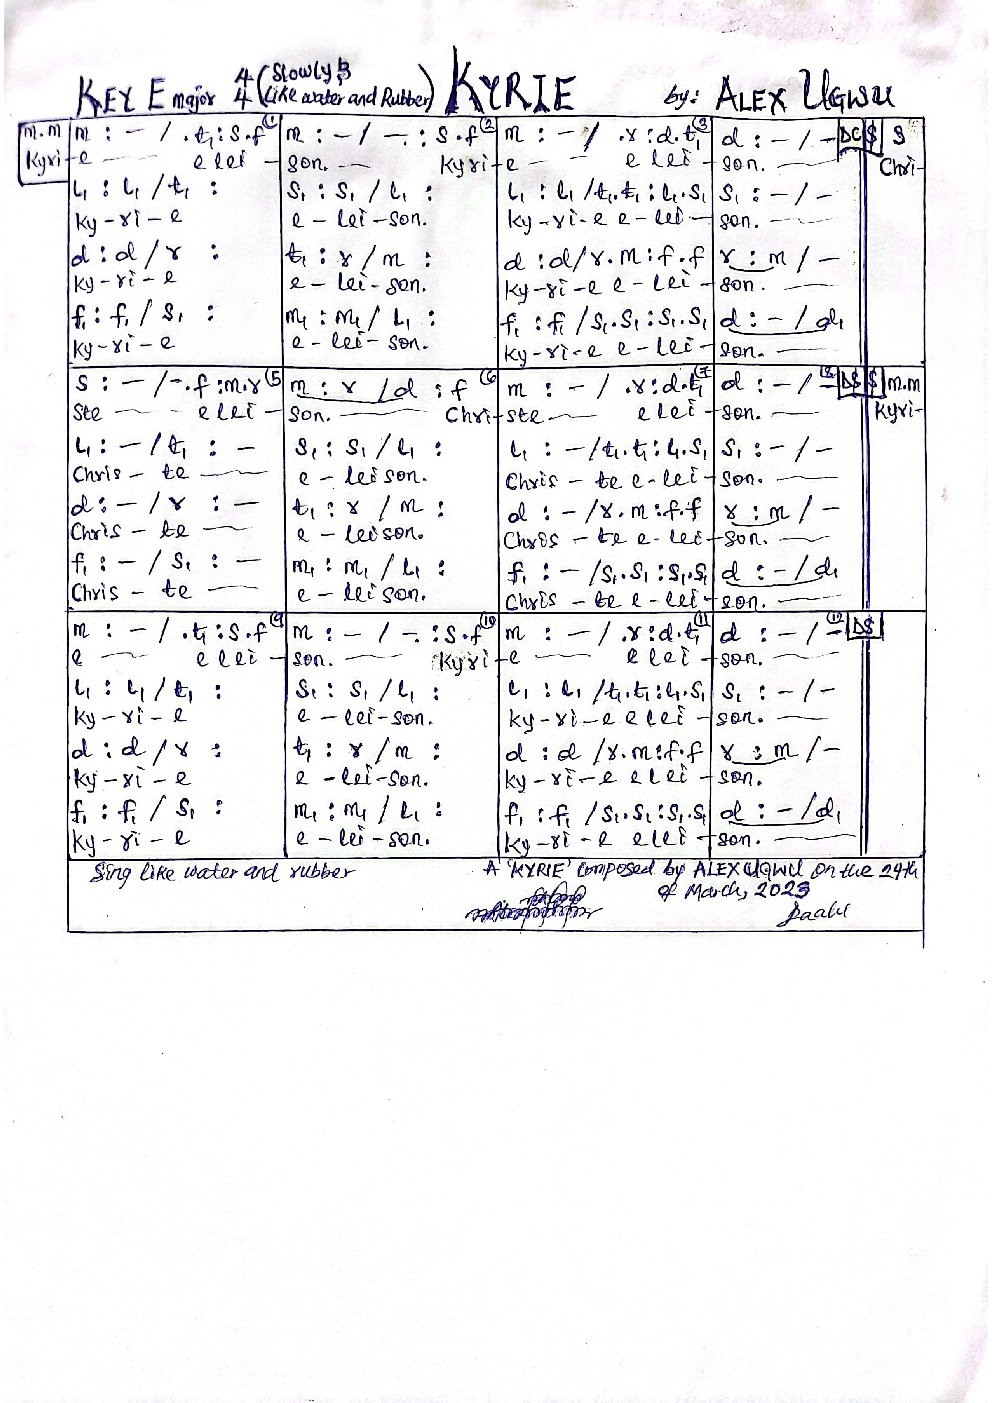 KEY E major 4/4 (Slowly & Like water and Rubber) KYRIE by: ALEX UGWU
m.m m : – / .t₁ : s.f ① m : – / – : s.f ② m : – / .r : d.t₁ ③ d : – / – DC $ s
Kyri-e e lei - son. Kyri-e e lei - son. Chri-
l₁ : l₁ / t₁ : s₁ : s₁ / l₁ : l₁ : l₁ / t₁.t₁ : l₁.s₁ s₁ : – / –
ky-ri-e e-lei-son. ky-ri-e e-lei-son.
d : d / r : t₁ : r / m : d : d / r.m : f.f r : m / –
ky-ri-e e-lei-son. ky-ri-e e-lei-son.
f₁ : f₁ / s₁ : m₁ : m₁ / l₁ : f₁ : f₁ / s₁.s₁ : s₁.s₁ d : – / d₁
ky-ri-e e-lei-son. ky-ri-e e-lei-son.
s : – / –.f : m.r ⑤ m : r / d : f ⑥ m : – / .r : d.t₁ ⑦ d : – / – ⑧ D$ $ m.m
ste e lei - son. Chri-ste e lei - son. Kyri-
l₁ : – / t₁ : – s₁ : s₁ / l₁ : l₁ : – / t₁.t₁ : l₁.s₁ s₁ : – / –
Chris-te e-leison. Chris-te e-lei-son.
d : – / r : – t₁ : r / m : d : – / r.m : f.f r : m / –
Chris-te e-leison. Chris-te e-lei-son.
f₁ : – / s₁ : – m₁ : m₁ / l₁ : f₁ : – / s₁.s₁ : s₁.s₁ d : – / d₁
Chris-te e-leison. Chris-te e-lei-son.
m : – / .t₁ : s.f ⑨ m : – / – : s.f ⑩ m : – / .r : d.t₁ ⑪ d : – / – ⑫ D$
e e lei - son. Kyri-e e lei - son.
l₁ : l₁ / t₁ : s₁ : s₁ / l₁ : l₁ : l₁ / t₁.t₁ : l₁.s₁ s₁ : – / –
ky-ri-e e-lei-son. ky-ri-e e lei-son.
d : d / r : t₁ : r / m : d : d / r.m : f.f r : m / –
ky-ri-e e-lei-son. ky-ri-e e lei-son.
f₁ : f₁ / s₁ : m₁ : m₁ / l₁ : f₁ : f₁ / s₁.s₁ : s₁.s₁ d : – / d₁
ky-ri-e e-lei-son. ky-ri-e e lei-son.
Sing like water and rubber A 'KYRIE' composed by ALEX UGWU on the 29th
of March, 2023